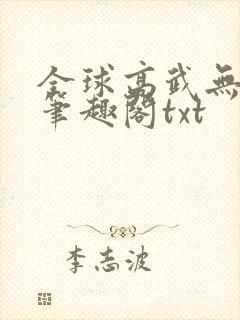 全球高武無
筆趣閣txt
李志波